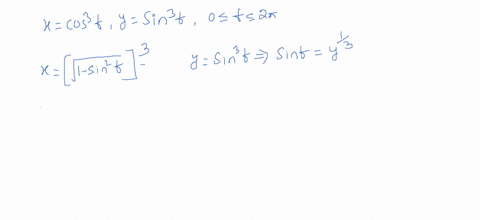 x = cos³t, y = Sin³t, 0 ≤ t ≤ 2π
x = [√(1-Sin²t)]³ y = Sin³t ⇒ Sint = y^(1/3)